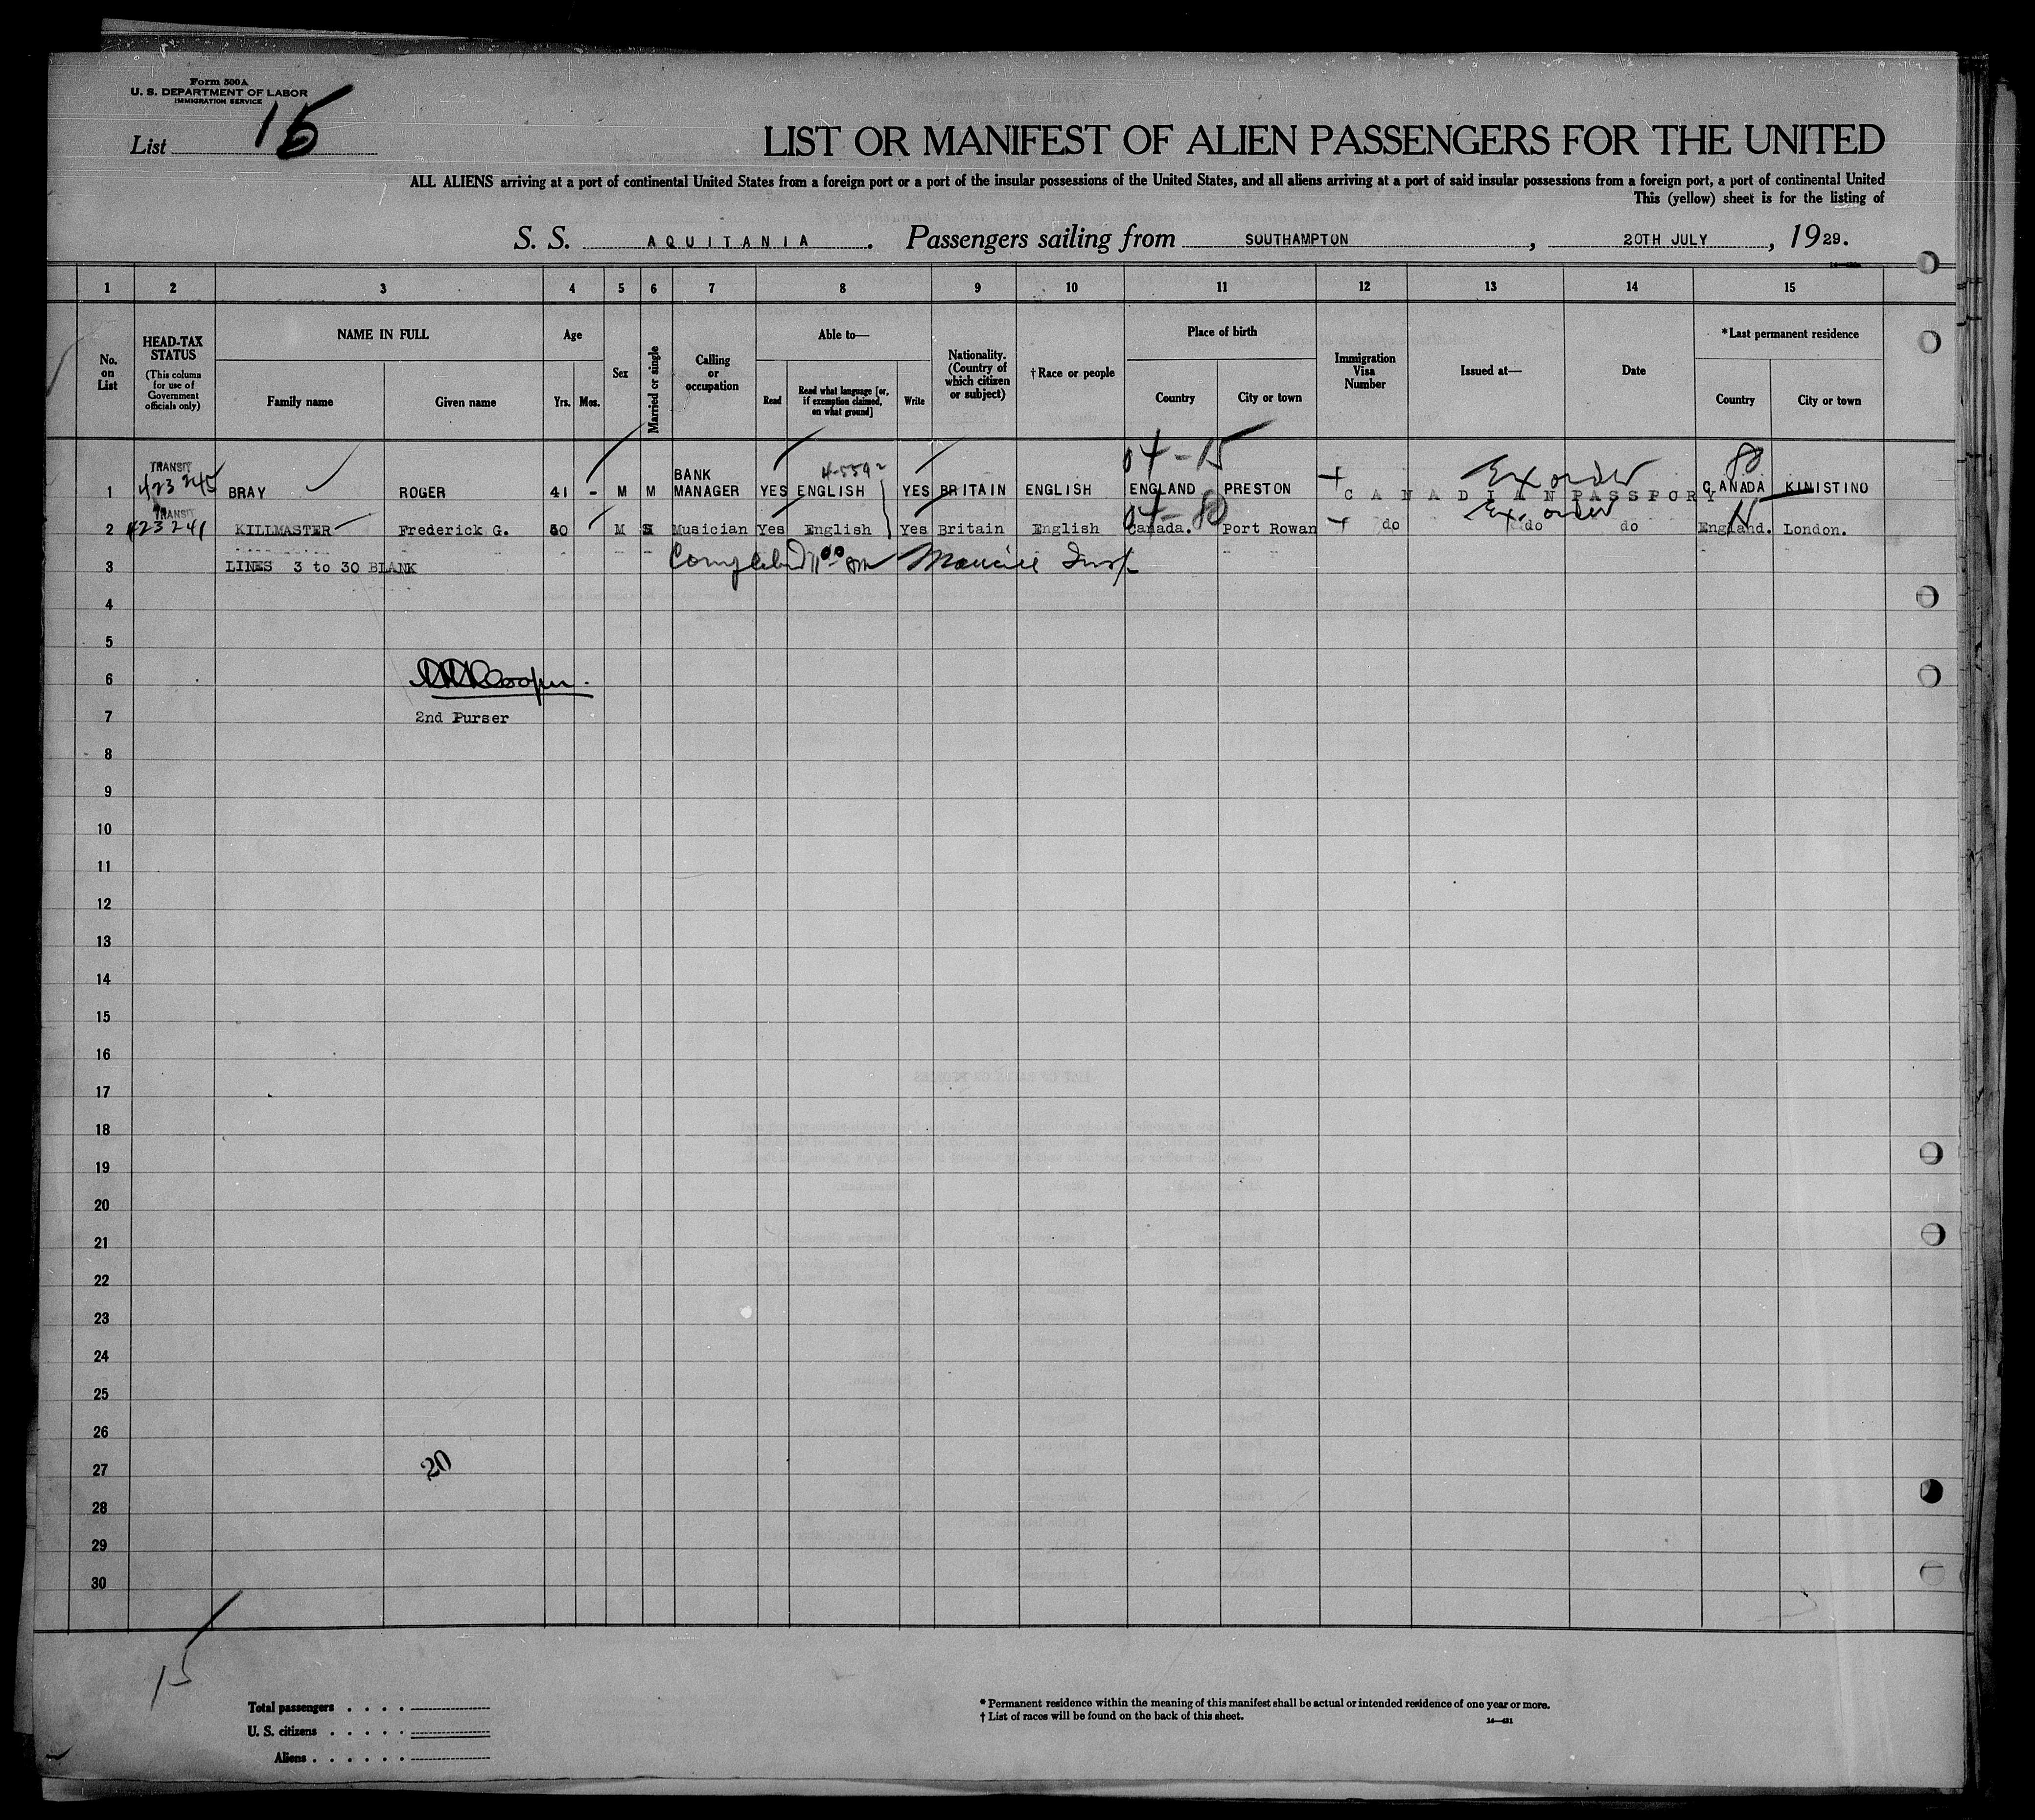 Form 500 A
U. S. DEPARTMENT OF LABOR
IMMIGRATION SERVICE
List 15
LIST OR MANIFEST OF ALIEN PASSENGERS FOR THE UNITED
ALL ALIENS arriving at a port of continental United States from a foreign port or a port of the insular possessions of the United States, and all aliens arriving at a port of said insular possessions from a foreign port, a port of continental United
This (yellow) sheet is for the listing of
S. S. AQUITANIA. Passengers sailing from SOUTHAMPTON, 20TH JULY, 1929.
1 2 3 4 5 6 7 8 9 10 11 12 13 14 15
No. on List
HEAD-TAX STATUS
(This column for use of Government officials only)
NAME IN FULL
Family name Given name
Age
Yrs. Mos.
Sex
Married or single
Calling or occupation
Able to—
Read
Read what language [or, if exemption claimed, on what ground]
Write
Nationality. (Country of which citizen or subject)
† Race or people
Place of birth
Country City or town
Immigration Visa Number
Issued at—
Date
*Last permanent residence
Country City or town
04-15 Ex order 80
TRANSIT 4-559
423 245
1 BRAY ROGER 41 - M M BANK MANAGER YES ENGLISH YES BRITAIN ENGLISH ENGLAND PRESTON CANADIAN PASSPORT CANADA KINISTINO
TRANSIT 04-80 Ex. order
423 241
2 KILLMASTER Frederick G. 30 M S Musician Yes English Yes Britain English Canada. Port Rowan do do do England. London.
3 LINES 3 to 30 BLANK
4
5
6 Cooper.
7 2nd Purser
8
9
10
11
12
13
14
15
16
17
18
19
20
21
22
23
24
25
26
27 20
28
29
30
15
Total passengers
U. S. citizens
Aliens
* Permanent residence within the meaning of this manifest shall be actual or intended residence of one year or more.
† List of races will be found on the back of this sheet.
14—431